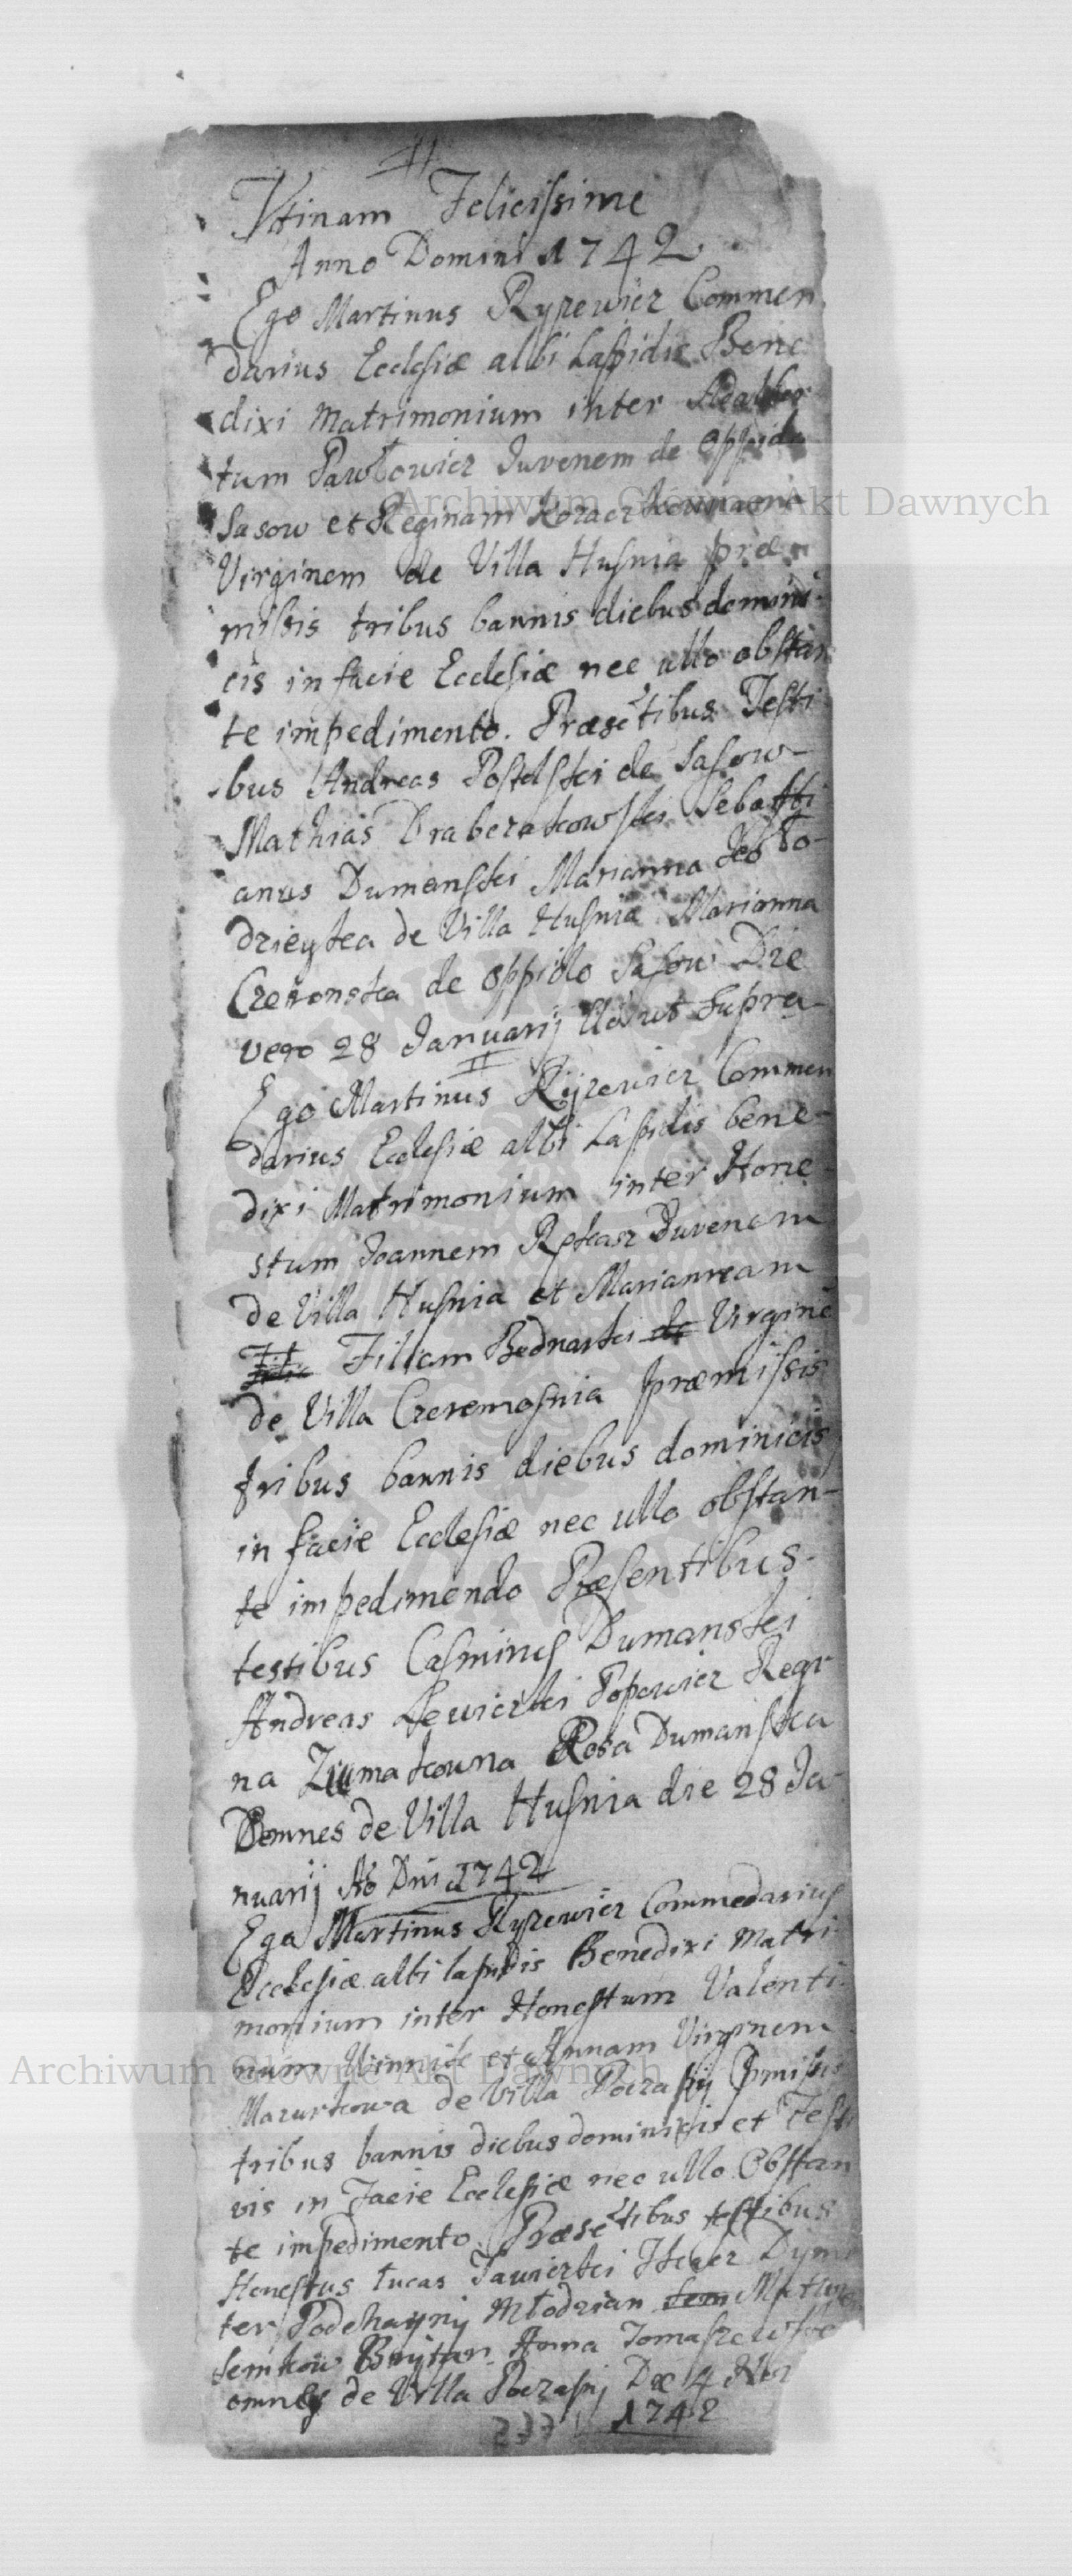 Vtinam Felicissime
Anno Domini 1742
Ego Martinus Ryzewicz Commen
darius Ecclesiæ albi Lapidis Bene
dixi Matrimonium inter Adalber
tum Pawłowicz Juvenem de Oppido
Sasow et Reginam
Virginem de Villa Husnia præ
missis tribus bannis diebus domini
cis in facie Ecclesiæ nec ullo obstan
te impedimento. Præsētibus Testi
bus Andreas Postelski de Sasow
Mathias Draberakowski Sebasti
anus Dumanski Marianna Koło-
drieyka de Villa Husnia Marianna
de Oppido Sasow Die
vero 28 Januarij Ao ut Supra
II
Ego Martinus Ryzewicz Commen
darius Ecclesiæ albi Lapidis bene-
dixi Matrimonium inter Hone
stum Joannem Juvenem
de Villa Husnia et Mariannam
Filiam Bednarski de Virginē
de Villa Czeremosnia præmissis
tribus bannis diebus dominicis
in facie Ecclesiæ nec ullo obstan-
te impedimendo Præsentibus
testibus Dumanski
Andreas Lewicki Popowicz Regi-
na Rosa Dumanska
omnes de Villa Husnia die 28 Ja-
nuarij Ao Dni 1742
Ego Martinus Ryzewicz Commedarius
Ecclesiæ albi lapidis Benedixi Matri
monium inter Honestum Valenti
num Winnik et Annam Virginem
Mazurkowa de Villa Poczapij
tribus bannis diebus dominicis et Festi
vis in Facie Ecclesiæ nec ullo Obstan
te impedimento Præsētibus testibus
Honestus Lucas Jawicrki Tkacz Dymi
ter Podehayny Młodzian
Semkow Anna Tomaszewska
omnes de Villa Poczapij Die 4
1742
Archiwum Główne Akt Dawnych
Archiwum Główne Akt Dawnych